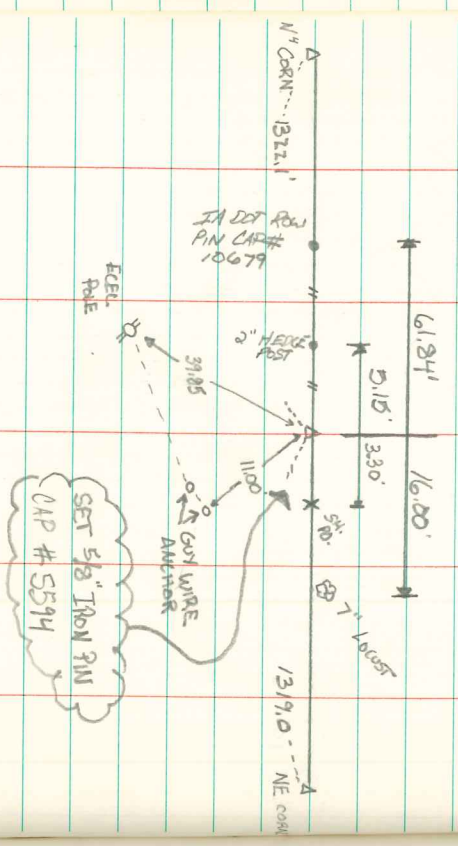 N¼ CORN
1322.1'
IA DOT ROW
PIN CAP#
10679
61.84'
16.00'
2" HEDGE
POST
5.15'
3.30'
ELEC.
POLE
39.85
11.00
GUY WIRE
ANCHOR
7" LOCUST
1319.0
NE CORN
SET 5/8" IRON PIN
CAP # 5594